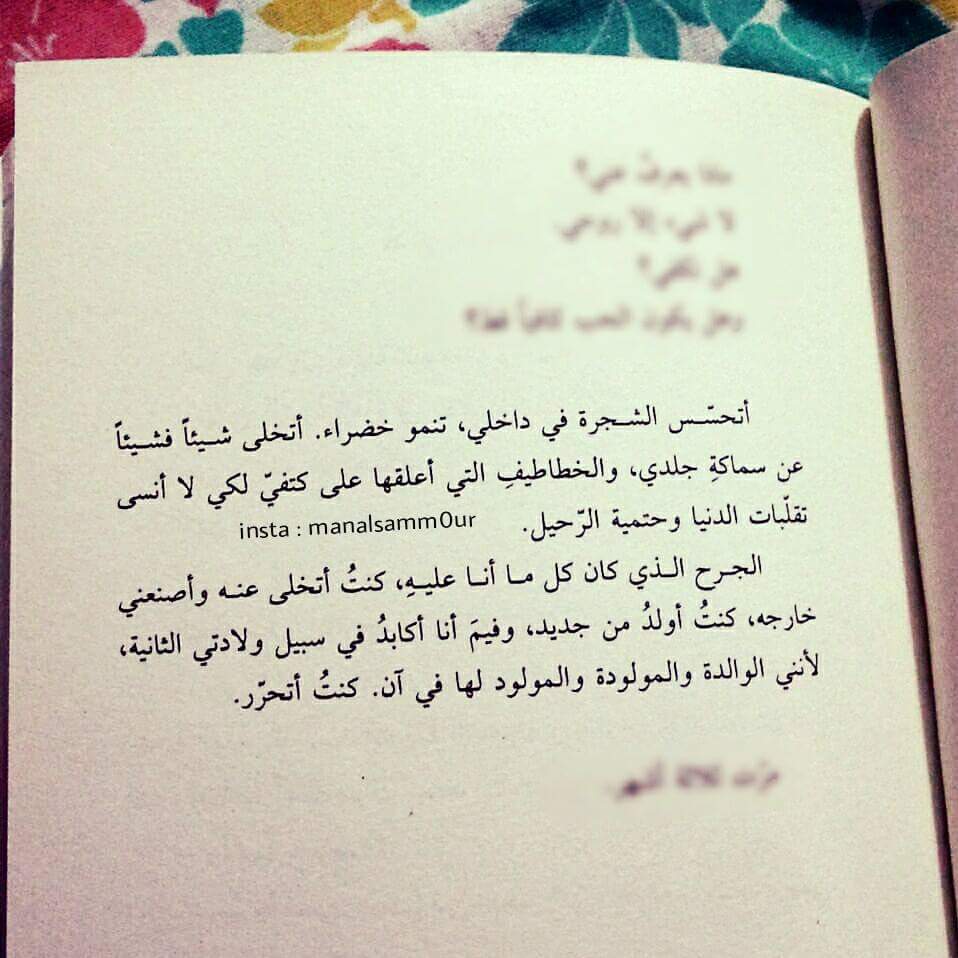 ماذا يعرفُ عني؟
لا شيء إلا روحي
هل تكفي؟
وهل يكون الحب كافياً
أتحسّس الشجرة في داخلي، تنمو خضراء. أتخلى شيئاً فشيئاً
عن سماكةِ جلدي، والخطاطيفِ التي أعلقها على كتفيّ لكي لا أنسى
تقلّبات الدنيا وحتمية الرّحيل.
insta : manalsamm0ur
الجرح الذي كان كل ما أنا عليهِ، كنتُ أتخلى عنه وأصنعني
خارجه، كنتُ أولدُ من جديد، وفيمَ أنا أكابدُ في سبيل ولادتي الثانية،
لأنني الوالدة والمولودة والمولود لها في آن. كنتُ أتحرّر.
مرّت ثلاثة أشهر.